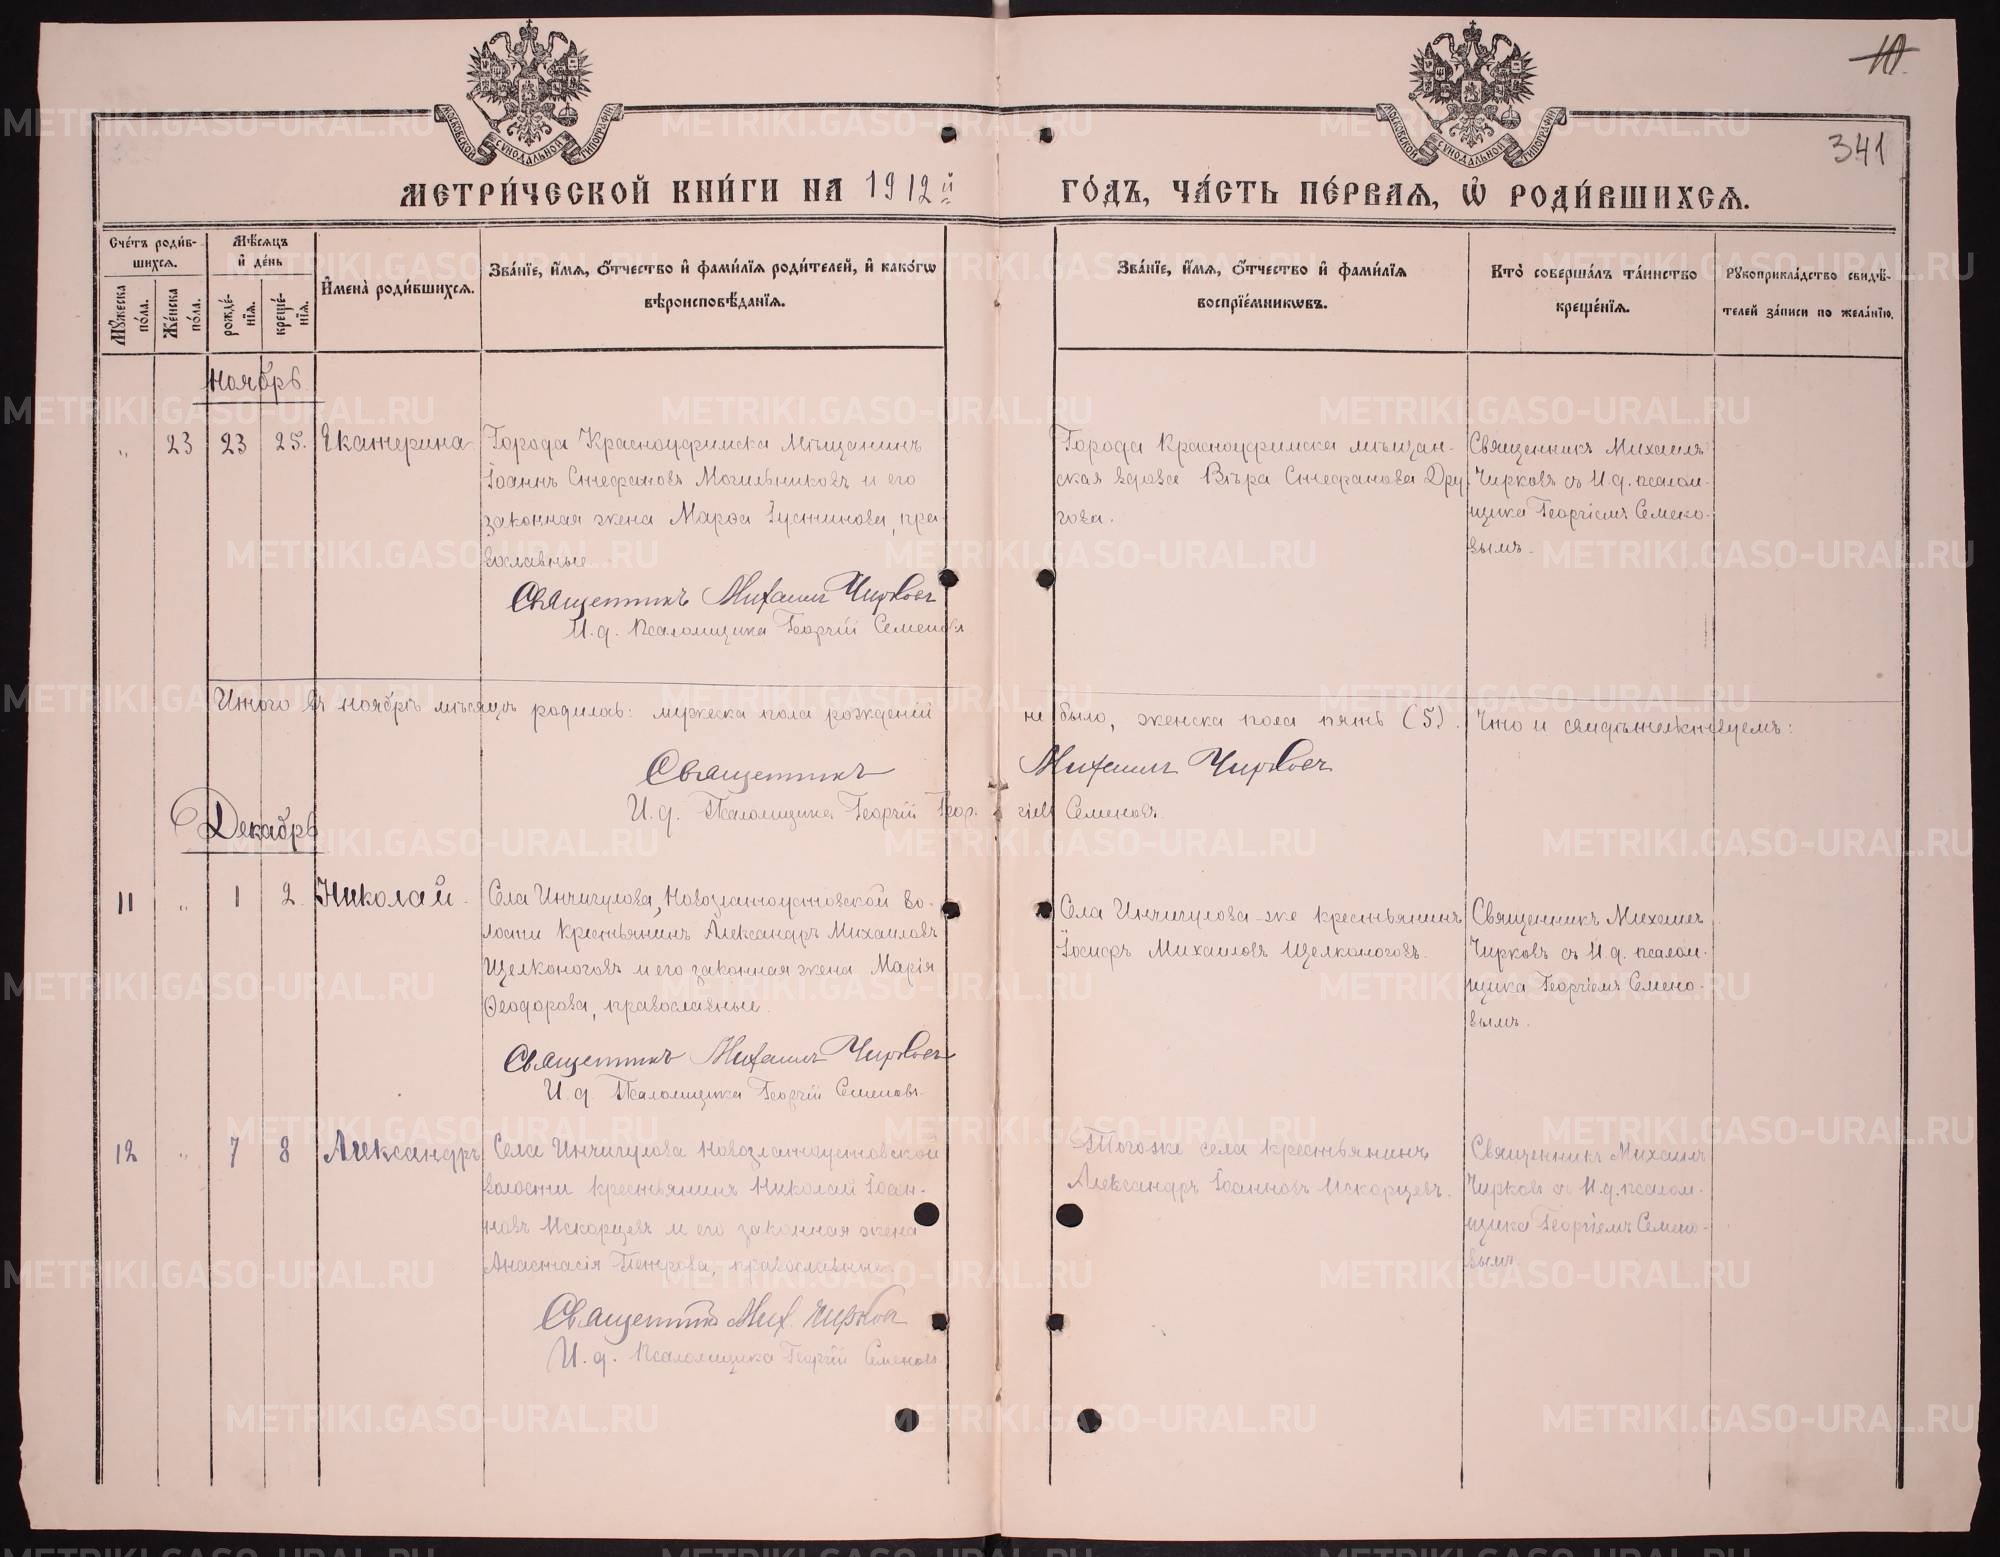 10.
341
МОСКОВСКОЙ СѴНОДАЛЬНОЙ ТИПОГРАФІИ
МОСКОВСКОЙ СѴНОДАЛЬНОЙ ТИПОГРАФІИ
МЕТРИ́ЧЕСКОЙ КНИ́ГИ НА 1912й ГО́ДЪ, ЧА́СТЬ ПЕ́РВАѦ, Ѡ҆ РОДИ́ВШИХСѦ.
Сче́тъ роди́в-
шихсѧ.
Мꙋжеска по́ла.
Же́нска по́ла.
Мѣ́сѧцъ и҆ де́нь
рожде́-нїѧ.
креще́-нїѧ.
И҆мена̀ роди́вшихсѧ.
Зва́нїе, и҆́мѧ, ѻ҆́тчество и҆ фами́лїѧ роди́телей, и҆ како́гѡ
вѣроисповѣ́данїѧ.
Зва́нїе, и҆́мѧ, ѻ҆́тчество и҆ фами́лїѧ
воспрїе́мникѡвъ.
Кто̀ соверша́лъ та́инство
креще́нїѧ.
Рꙋкоприкла́дство свидѣ́-
телей за́писи по жела́нїю.
Ноябрь
„ 23 23 25. Екатерина
Города Красноуфимска мѣщанинъ
Іоаннъ Стефановъ Могильниковъ и его
законная жена Марѳа Іустинова, пра-
вославные.
Священникъ Михаилъ Чирковъ
И. д. Псаломщика Георгій Семеновъ
Города Красноуфимска мѣщан-
ская вдова Вѣра Стефанова Дру
гова.
Священникъ Михаилъ
Чирковъ съ И. д. псалом-
щика Георгіемъ Семено-
вымъ.
Итого въ ноябрѣ мѣсяцѣ родилось: мужеска пола рожденій не было, женска пола пять (5). Что и свидѣтельствуемъ:
Священникъ Михаилъ Чирковъ
И. д. Псаломщика Георгій Геор-гіевъ Семеновъ.
Декабрь
11 „ 1 2. Николай.
Села Инчигулова, Новозлатоустовской во-
лости крестьянинъ Александръ Михаиловъ
Щелконоговъ и его законная жена Марія
Ѳеодорова, православные.
Священникъ Михаилъ Чирковъ
И. д. Псаломщика Георгій Семеновъ.
Села Инчигулова-же крестьянинъ
Іосифъ Михаиловъ Щелконоговъ.
Священникъ Михаилъ
Чирковъ съ И. д. псалом-
щика Георгіемъ Семено-
вымъ.
12 „ 7 8 Александръ
Села Инчигулова Новозлатоустовской
волости крестьянинъ Николай Іоан-
новъ Искорцевъ и его законная жена
Анастасія Петрова, православные.
Священникъ Мих. Чирковъ
И. д. Псаломщика Георгій Семеновъ.
Тогоже села крестьянинъ
Александръ Іоанновъ Искорцевъ.
Священникъ Михаилъ
Чирковъ съ И. д. псалом-
щика Георгіемъ Семено-
вымъ.
METRIKI.GASO-URAL.RU